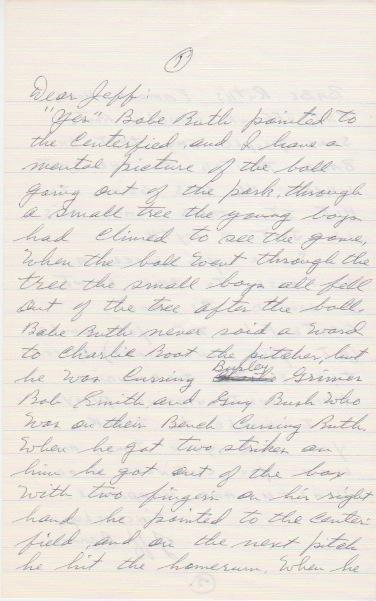 1
Dear Jeff:
"Yes" Babe Ruth pointed to
the Centerfied and I have a
mental picture of the ball
going out of the park, through
a small tree the young boys
had climed to see the game,
When the ball went through the
tree the small boys all fell
out of the tree after the ball.
Babe Ruth never said a word
to Charlie Root the pitcher, but
he was cursing Burley Grimes
Bob Smith and Guy Bush who
was on their Bench Cursing Ruth.
When he got two strikes on
him he got out of the box
With two fingers on his right
hand he pointed to the center-
field, and on the next pitch
he hit the homerum. When he